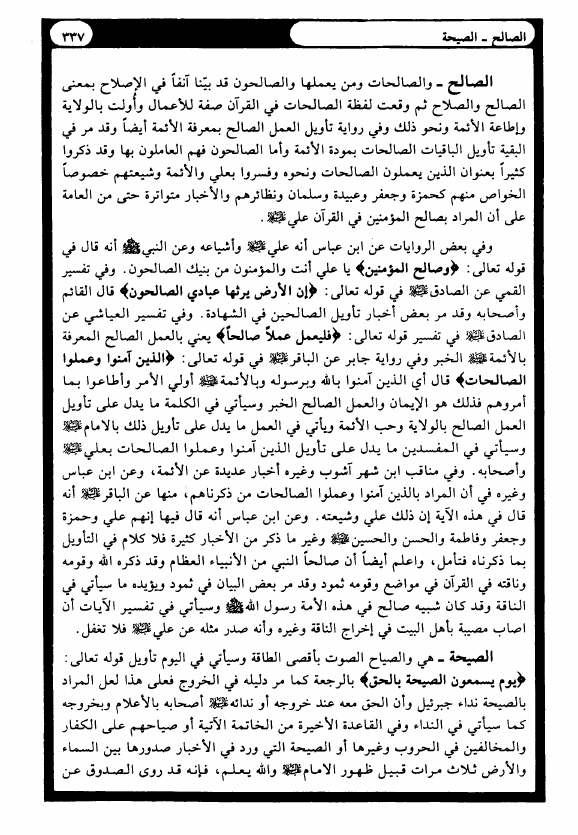 الصالح - الصيحة
٣٣٧
الصالح - والصالحات ومن يعملها والصالحون قد بيّنا آنفاً في الإصلاح بمعنى
الصالح والصلاح ثم وقعت لفظة الصالحات في القرآن صفة للأعمال وأُولت بالولاية
وإطاعة الأئمة ونحو ذلك وفي رواية تأويل العمل الصالح بمعرفة الأئمة أيضاً وقد مر في
البقية تأويل الباقيات الصالحات بمودة الأئمة وأما الصالحون فهم العاملون بها وقد ذكروا
كثيراً بعنوان الذين يعملون الصالحات ونحوه وفسروا بعلي والأئمة وشيعتهم خصوصاً
الخواص منهم كحمزة وجعفر وعبيدة وسلمان ونظائرهم والأخبار متواترة حتى من العامة
على أن المراد بصالح المؤمنين في القرآن علي عليه السلام.
وفي بعض الروايات عن ابن عباس أنه علي عليه السلام وأشياعه وعن النبي ﷺ أنه قال في
قوله تعالى: ﴿وصالح المؤمنين﴾ يا علي أنت والمؤمنون من بنيك الصالحون. وفي تفسير
القمي عن الصادق عليه السلام في قوله تعالى: ﴿إن الأرض يرثها عبادي الصالحون﴾ قال القائم
وأصحابه وقد مر بعض أخبار تأويل الصالحين في الشهادة. وفي تفسير العياشي عن
الصادق عليه السلام في تفسير قوله تعالى: ﴿فليعمل عملاً صالحاً﴾ يعني بالعمل الصالح المعرفة
بالأئمة عليه السلام الخبر وفي رواية جابر عن الباقر عليه السلام في قوله تعالى: ﴿الذين آمنوا وعملوا
الصالحات﴾ قال أي الذين آمنوا بالله وبرسوله وبالأئمة عليه السلام أولي الأمر وأطاعوا بما
أمروهم فذلك هو الإيمان والعمل الصالح الخبر وسيأتي في الكلمة ما يدل على تأويل
العمل الصالح بالولاية وحب الأئمة ويأتي في العمل ما يدل على تأويل ذلك بالامام عليه السلام
وسيأتي في المفسدين ما يدل على تأويل الذين آمنوا وعملوا الصالحات بعلي عليه السلام
وأصحابه. وفي مناقب ابن شهر آشوب وغيره أخبار عديدة عن الأئمة، وعن ابن عباس
وغيره في أن المراد بالذين آمنوا وعملوا الصالحات من ذكرناهم، منها عن الباقر عليه السلام أنه
قال في هذه الآية إن ذلك علي وشيعته. وعن ابن عباس أنه قال فيها إنهم علي وحمزة
وجعفر وفاطمة والحسن والحسين عليه السلام وغير ما ذكر من الأخبار كثيرة فلا كلام في التأويل
بما ذكرناه فتأمل، واعلم أيضاً أن صالحاً النبي من الأنبياء العظام وقد ذكره الله وقومه
وناقته في القرآن في مواضع وقومه ثمود وقد مر بعض البيان في ثمود ويؤيده ما سيأتي في
الناقة وقد كان شبيه صالح في هذه الأمة رسول الله ﷺ وسيأتي في تفسير الآيات أن
اصاب مصيبة بأهل البيت في إخراج الناقة وغيره وأنه صدر مثله عن علي عليه السلام فلا تغفل.
الصيحة - هي والصياح الصوت بأقصى الطاقة وسيأتي في اليوم تأويل قوله تعالى:
﴿يوم يسمعون الصيحة بالحق﴾ بالرجعة كما مر دليله في الخروج فعلى هذا لعل المراد
بالصيحة نداء جبرئيل وأن الحق معه عند خروجه أو ندائه عليه السلام أصحابه بالأعلام وبخروجه
كما سيأتي في النداء وفي القاعدة الأخيرة من الخاتمة الآتية أو صياحهم على الكفار
والمخالفين في الحروب وغيرها أو الصيحة التي ورد في الأخبار صدورها بين السماء
والأرض ثلاث مرات قبيل ظهور الامام عليه السلام والله يعلم، فإنه قد روى الصدوق عن